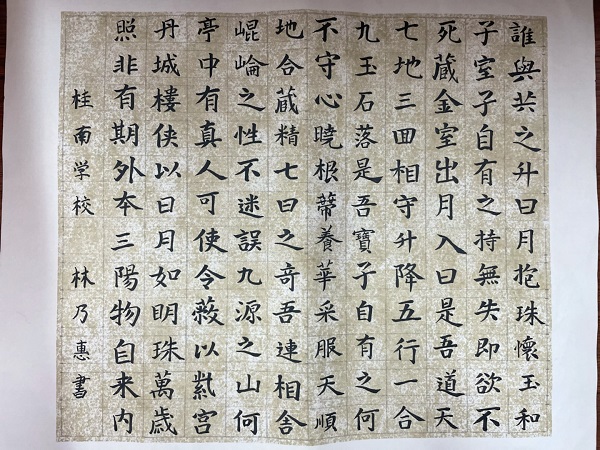 誰與共之升日月抱珠懷玉和
子室子自有之持無失即欲不
死藏金室出月入日是吾道天
七地三囬相守升降五行一合
九玉石落是吾寶子自有之何
不守心曉根蔕養華采服天順
地合藏精七日之奇吾連相舍
崐崘之性不迷誤九源之山何
亭中有真人可使令蔽以紫宫
丹城樓俠以日月如明珠萬歲
照非有期外本三陽物自来内
桂南学校 林乃惠書